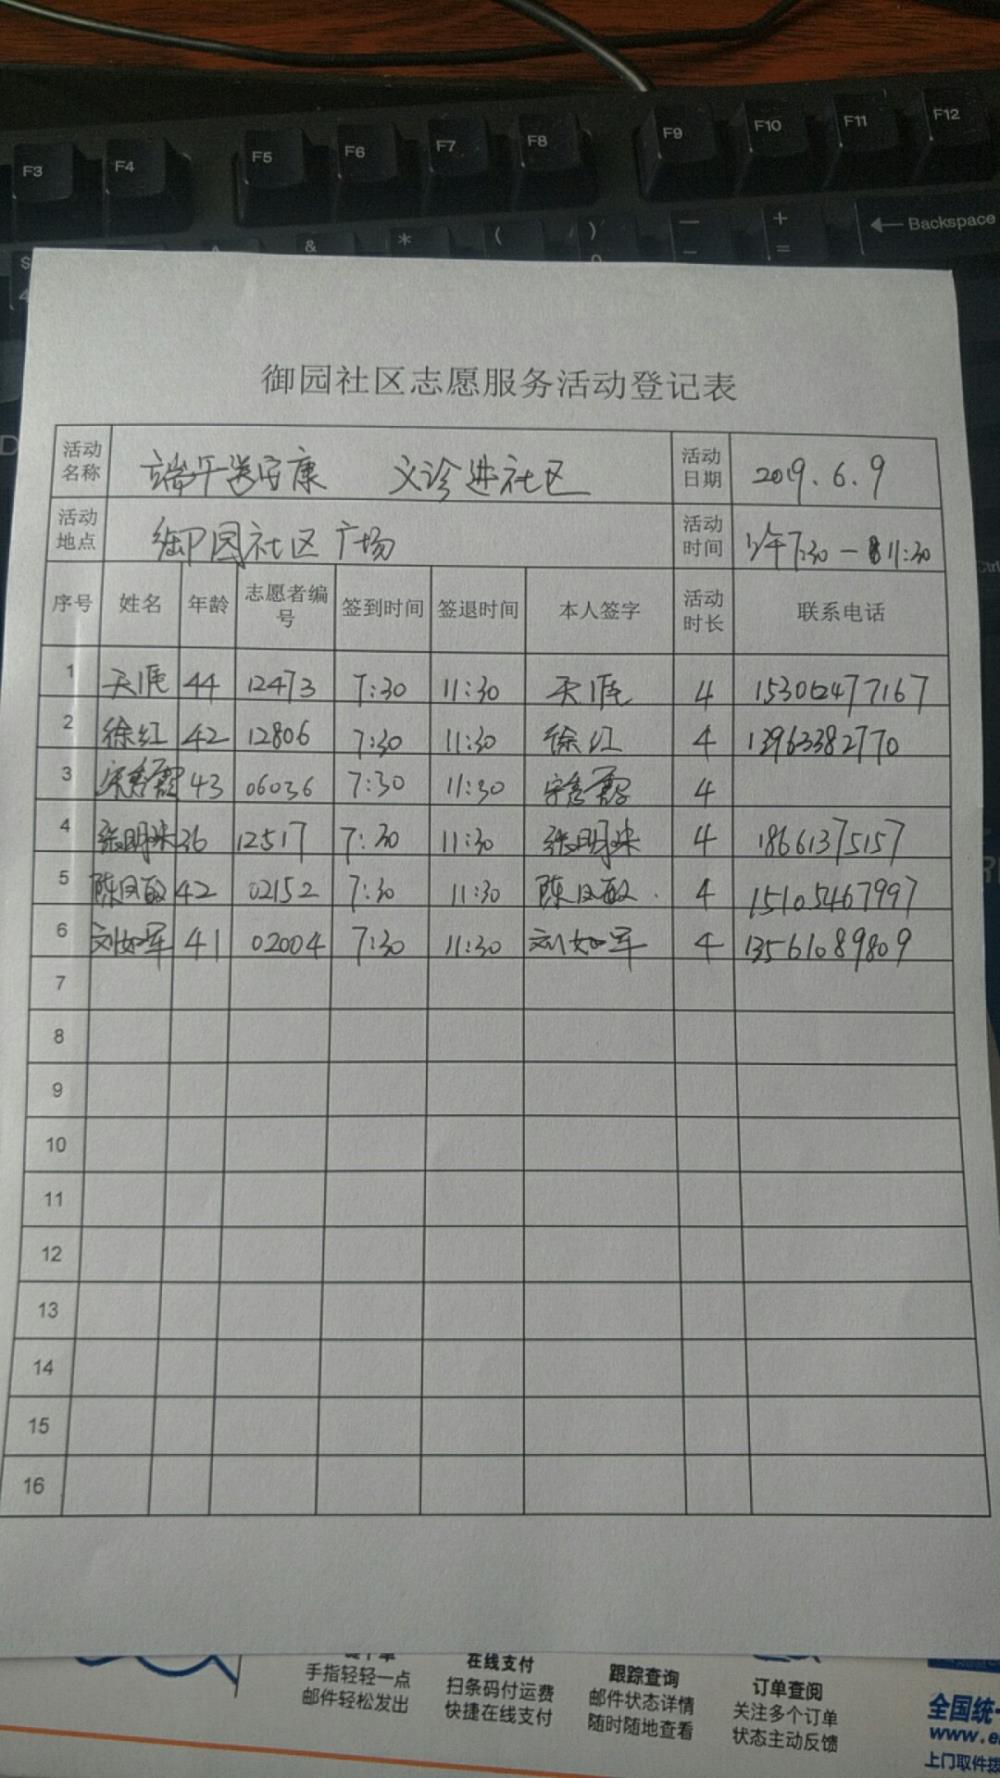 F3 F4 F5 F6 F7 F8 F9 F10 F11 F12
& * ( ) — + ← Backspace
$ 4 - =
御园社区志愿服务活动登记表
活动名称 端午送安康 义诊进社区 活动日期 2019.6.9
活动地点 御园社区广场 活动时间 上午7:30 — 11:30
序号 姓名 年龄 志愿者编号 签到时间 签退时间 本人签字 活动时长 联系电话
1 天涯 44 12473 7:30 11:30 天涯 4 153062477167
2 徐红 42 12806 7:30 11:30 徐红 4 13963382770
3 43 06036 7:30 11:30 4
4 张明味 36 12517 7:30 11:30 张明味 4 18661375157
5 陈凤敏 42 02152 7:30 11:30 陈凤敏 4 15105467997
6 刘如军 41 02004 7:30 11:30 刘如军 4 13561089809
7
8
9
10
11
12
13
14
15
16
在线支付 跟踪查询 订单查阅
手指轻轻一点 扫条码付运费 邮件状态详情 关注多个订单 全国统一
邮件轻松发出 快捷在线支付 随时随地查看 状态主动反馈 www.e
上门取件